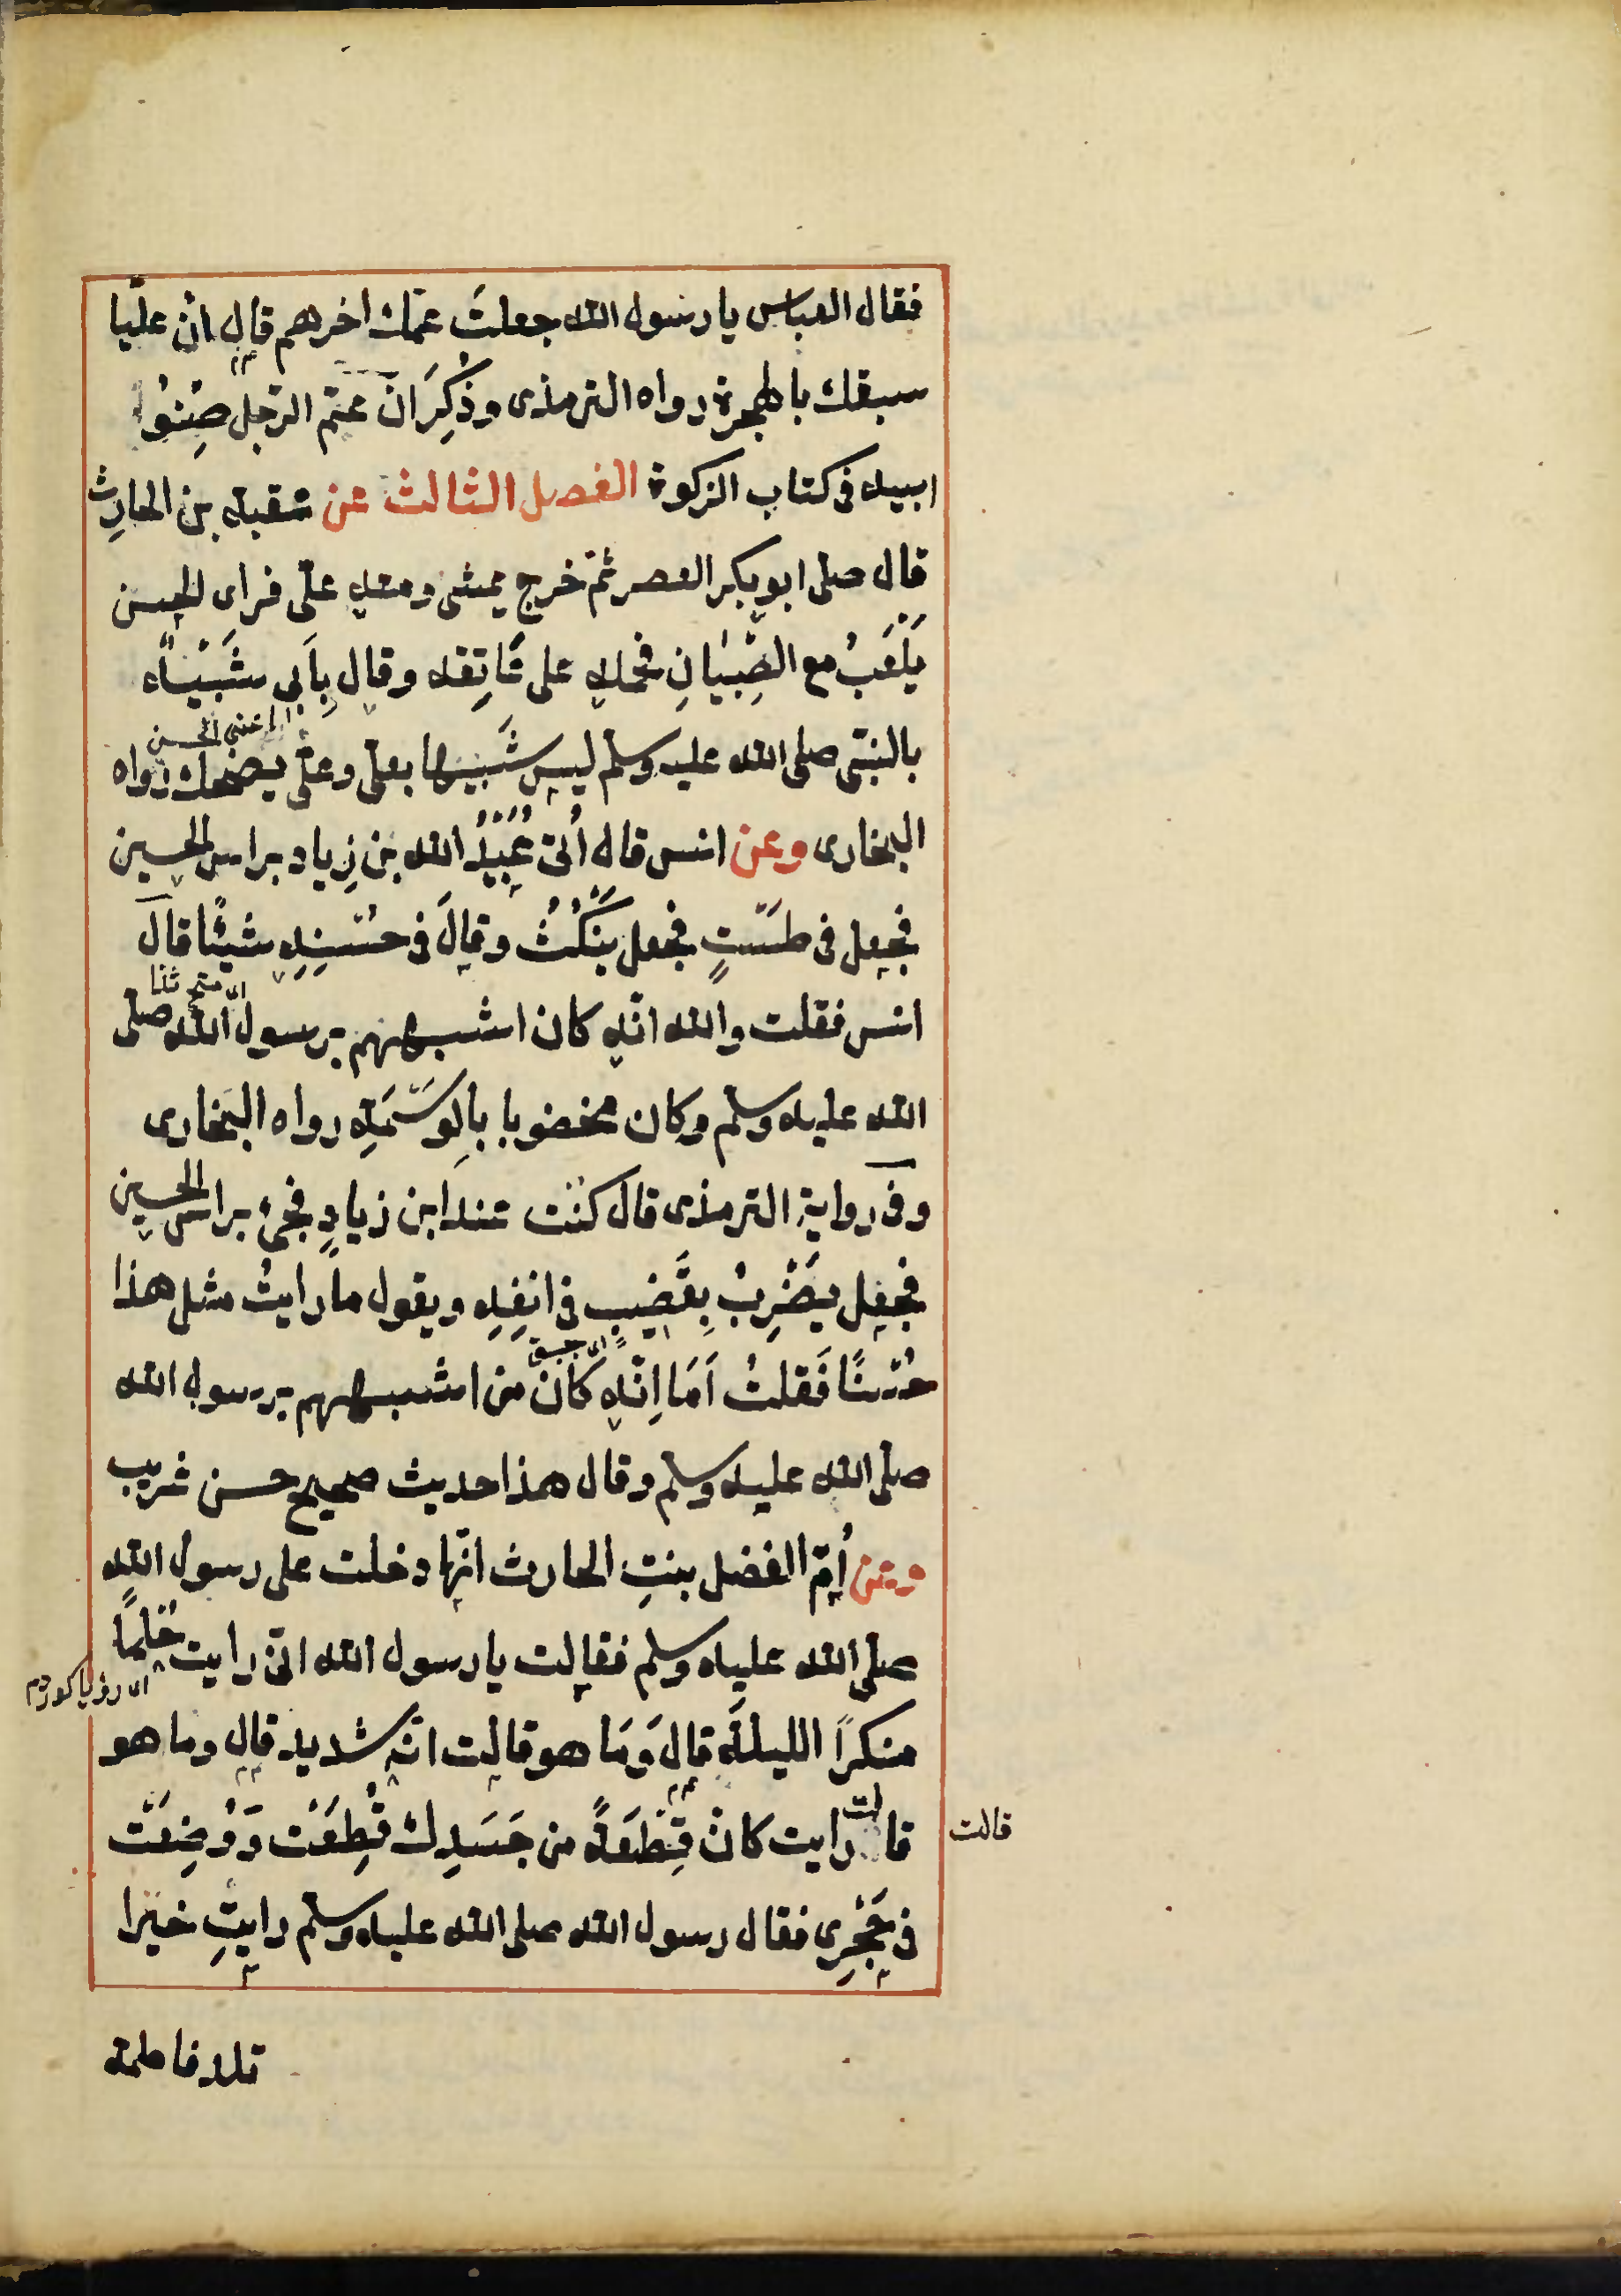 فقال العباس يا رسول الله جعلتَ عمّك اخرهم قال انّ عليّا
سبقك بالهجرة رواه الترمذى وذُكِرَ انّ عمّ الرّجل صِنْوُ
ابيه فى كتاب الزكوة الفصل الثالث عن عقبة بن الحارِث
قال صلى ابو بكر العصر ثمّ خرج يمشى ومعه علىّ فراى الحسن
يَلْعَبُ مع الصِّبْيَانِ فحمله على عَاتِقه وقال بِاَبِى شَبِيْهٌ
اى اعنى الحسن
بالنبىّ صلى الله عليه وسلم ليس شَبيها بعلى وعلىّ يضحك رواه
البخارى وعن انس قال اُتى عُبَيْدُ الله بن زِياد براس الحسين
فجعل فى طَسْتٍ فجعل يَنْكُتُ وقالَ فى حُسْنِهِ شيئًا قالَ
انس فقلت والله انّه كان اشبههم برسول الله صلى
الله عليه وسلم وكان مخضوبا بِالوَسْمَةِ رواه البخارى
وفى رواية الترمذى قال كنت عند ابن زيادٍ فجىُٔ براس الحسين
فجعل يَضْرِبُ بِقَضيبٍ فى انفِهِ ويقول ما رايتُ مثل هذا
حُسْنًا فَقلتُ اَمَا اِنّه كَان من اشبههم برسول الله
صلى الله عليه وسلم وقال هذا حديث صحيح حسن غريب
وعن اُمّ الفضل بنتِ الحارث انّها دخلت على رسول الله
صلى الله عليه وسلم فقالت يا رسول الله انّى رايت حُلمًا
منكرًا الليلةَ قالَ وَمَا هو قالت انّه شديد قال وما هو
قالت رايت كانّ قِطْعَةً من جَسَدِك قُطِعَتْ وَوُضِعَتْ
قالت
فى حَجْرِى فقال رسول الله صلى الله عليه وسلم رايتِ خيرا
تلد فاطمة